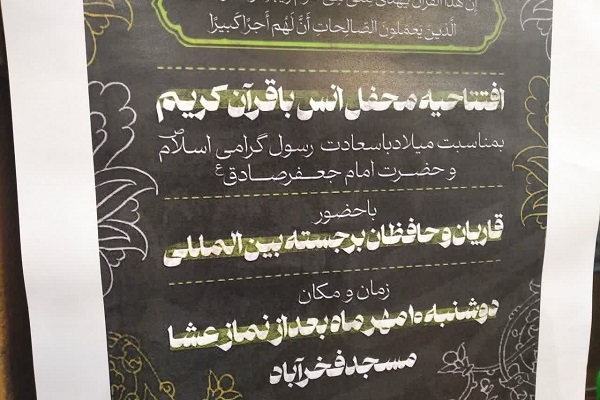 إِنَّ هَذَا الْقُرْآنَ
الَّذِينَ يَعْمَلُونَ الصَّالِحَاتِ أَنَّ لَهُمْ أَجْرًا كَبِيرًا
افتتاحیه محفل انس با قرآن کریم
بمناسبت میلاد باسعادت رسول گرامی اسلام ص
و حضرت امام جعفر صادق ع
باحضور
قاریان و حافظان برجسته بین المللی
زمان و مکان
دوشنبه ۱۰ مهر ماه بعد از نماز عشا
مسجد فخرآباد